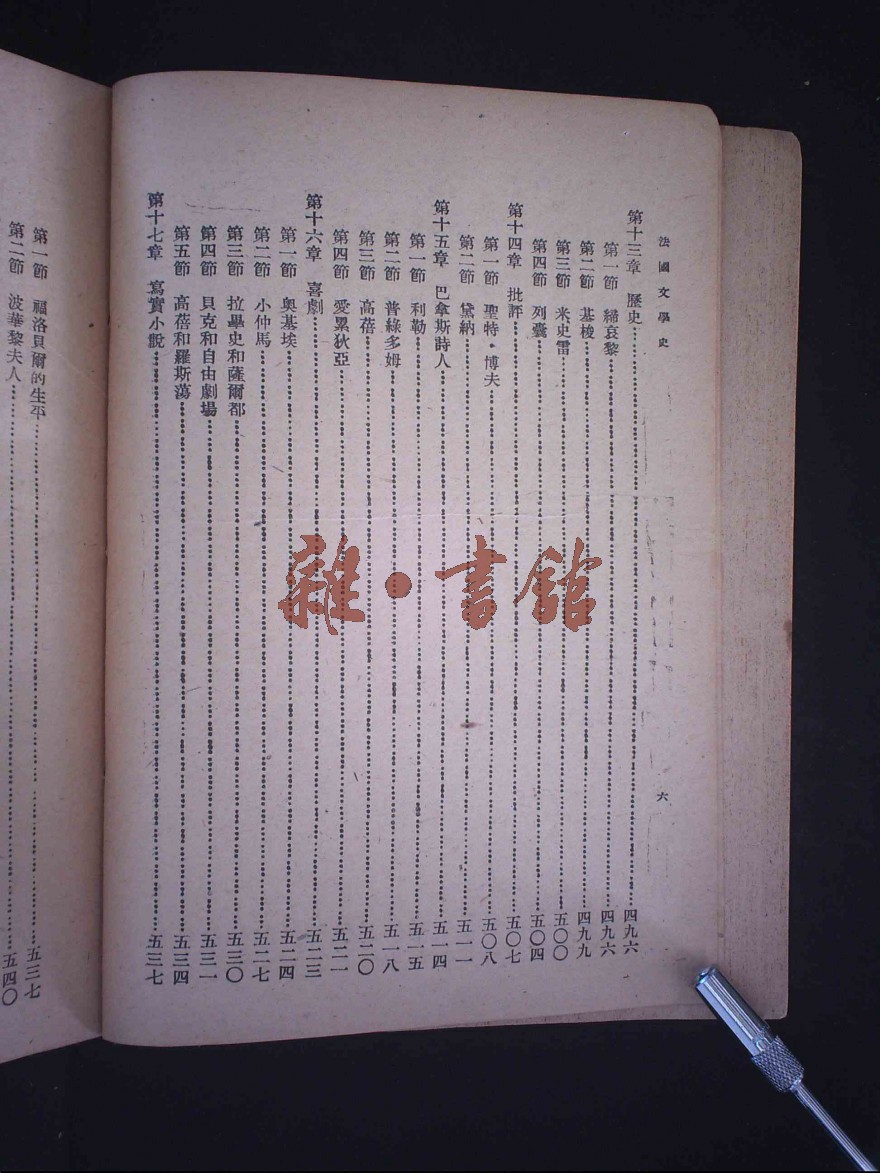 法國文學史
六
第十三章 歷史……四九六
第一節 綈哀黎……四九六
第二節 基梭……四九九
第三節 米史雷……五〇〇
第四節 列囊……五〇四
第十四章 批評……五〇七
第一節 聖特·博夫……五〇八
第二節 黛納……五一一
第十五章 巴拿斯詩人……五一四
第一節 利勒……五一五
第二節 普綠多姆……五一八
第三節 高蓓……五二〇
第四節 愛累狄亞……五二一
第十六章 喜劇……五二三
第一節 奧基埃……五二四
第二節 小仲馬……五二七
第三節 拉畢史和薩爾都……五三〇
第四節 貝克和自由劇場……五三一
第五節 高蓓和羅斯蕩……五三四
第十七章 寫實小說……五三七
第一節 福洛貝爾的生平……五三七
第二節 波華黎夫人……五四〇
雜·書館